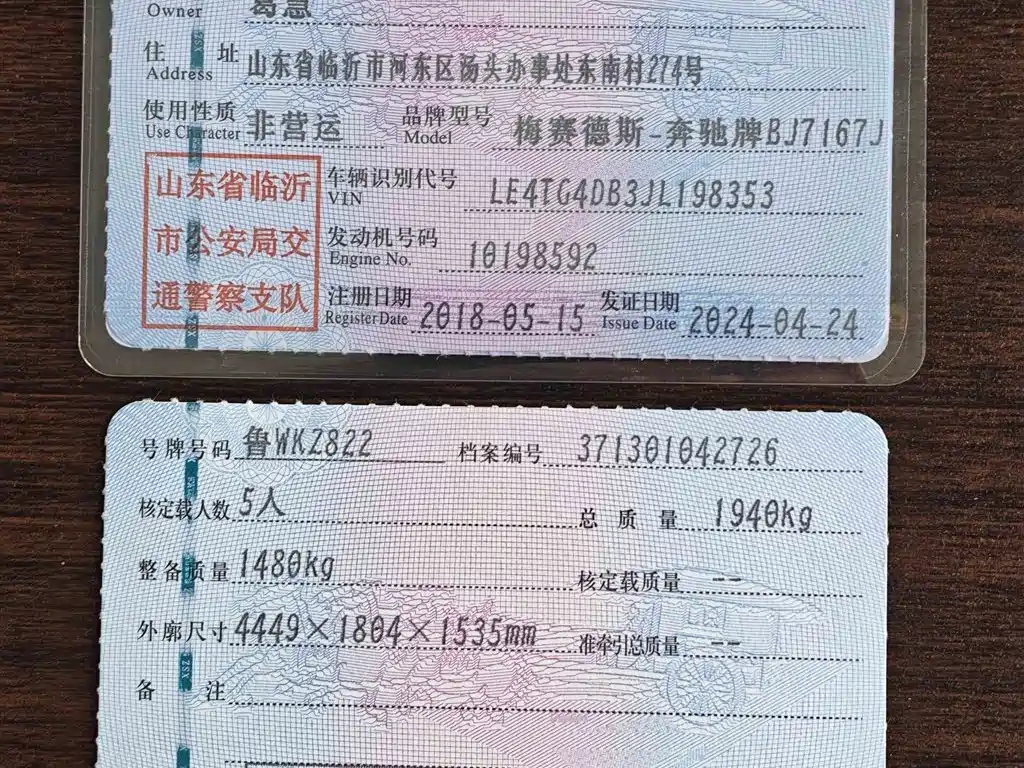 Owner 葛慧
住 址 山东省临沂市河东区汤头办事处东南村274号
Address
使用性质 非营运 品牌型号 梅赛德斯-奔驰牌BJ7167J
Use Character Model
山东省临沂
市公安局交
通警察支队
车辆识别代号 LE4TG4DB3JL198353
VIN
发动机号码 10198592
Engine No.
注册日期 2018-05-15 发证日期 2024-04-24
Register Date Issue Date
号牌号码 鲁WKZ822 档案编号 371301042726
核定载人数 5人 总 质 量 1940kg
整备质量 1480kg 核定载质量 --
外廓尺寸 4449×1804×1535mm 准牵引总质量 --
备 注